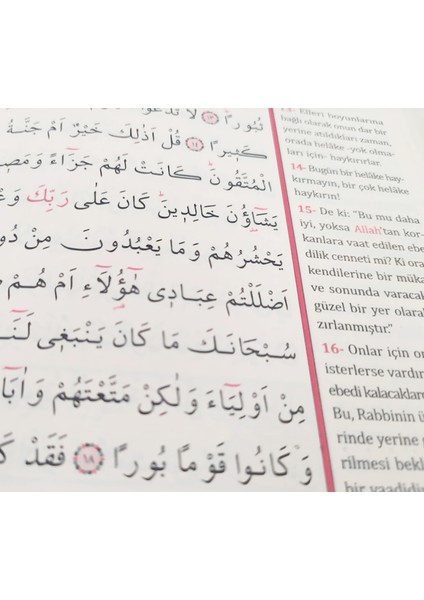 ثُبُورًا ﴿١٣﴾ لَا تَدْعُوا
كَثِيرًا ﴿١٤﴾ قُلْ اَذٰلِكَ خَيْرٌ اَمْ جَنَّةُ
الْمُتَّقُونَۜ كَانَتْ لَهُمْ جَزَٓاءً وَمَص
يَشَٓاؤُ۫نَ خَالِدٖينَۜ كَانَ عَلٰى رَبِّكَ وَعْ
يَحْشُرُهُمْ وَمَا يَعْبُدُونَ مِنْ دُو
اَضْلَلْتُمْ عِبَادٖى هٰٓؤُ۬لَٓاءِ اَمْ هُمْ
سُبْحَانَكَ مَا كَانَ يَنْبَغٖى لَنَٓا
مِنْ اَوْلِيَٓاءَ وَلٰكِنْ مَتَّعْتَهُمْ وَاٰبَٓا
وَكَانُوا قَوْمًا بُورًا ﴿١٨﴾ فَقَدْ كَ
13- Elleri boyunlarına
bağlı olarak onun dar bir
yerine atıldıkları zaman,
orada helâke -yok olma-
ları için- haykırırlar.
14- Bugün bir helâke hay-
kırmayın, bir çok helâke
haykırın!
15- De ki: "Bu mu daha
iyi, yoksa Allah'tan kor-
kanlara vaat edilen ebe
dilik cenneti mi? Ki ora
kendilerine bir müka
ve sonunda varacak
güzel bir yer olara
zırlanmıştır."
16- Onlar için or
isterlerse vardır
ebedi kalacaklar
Bu, Rabbinin ü
rinde yerine g
rilmesi bekl
bir vaadidi